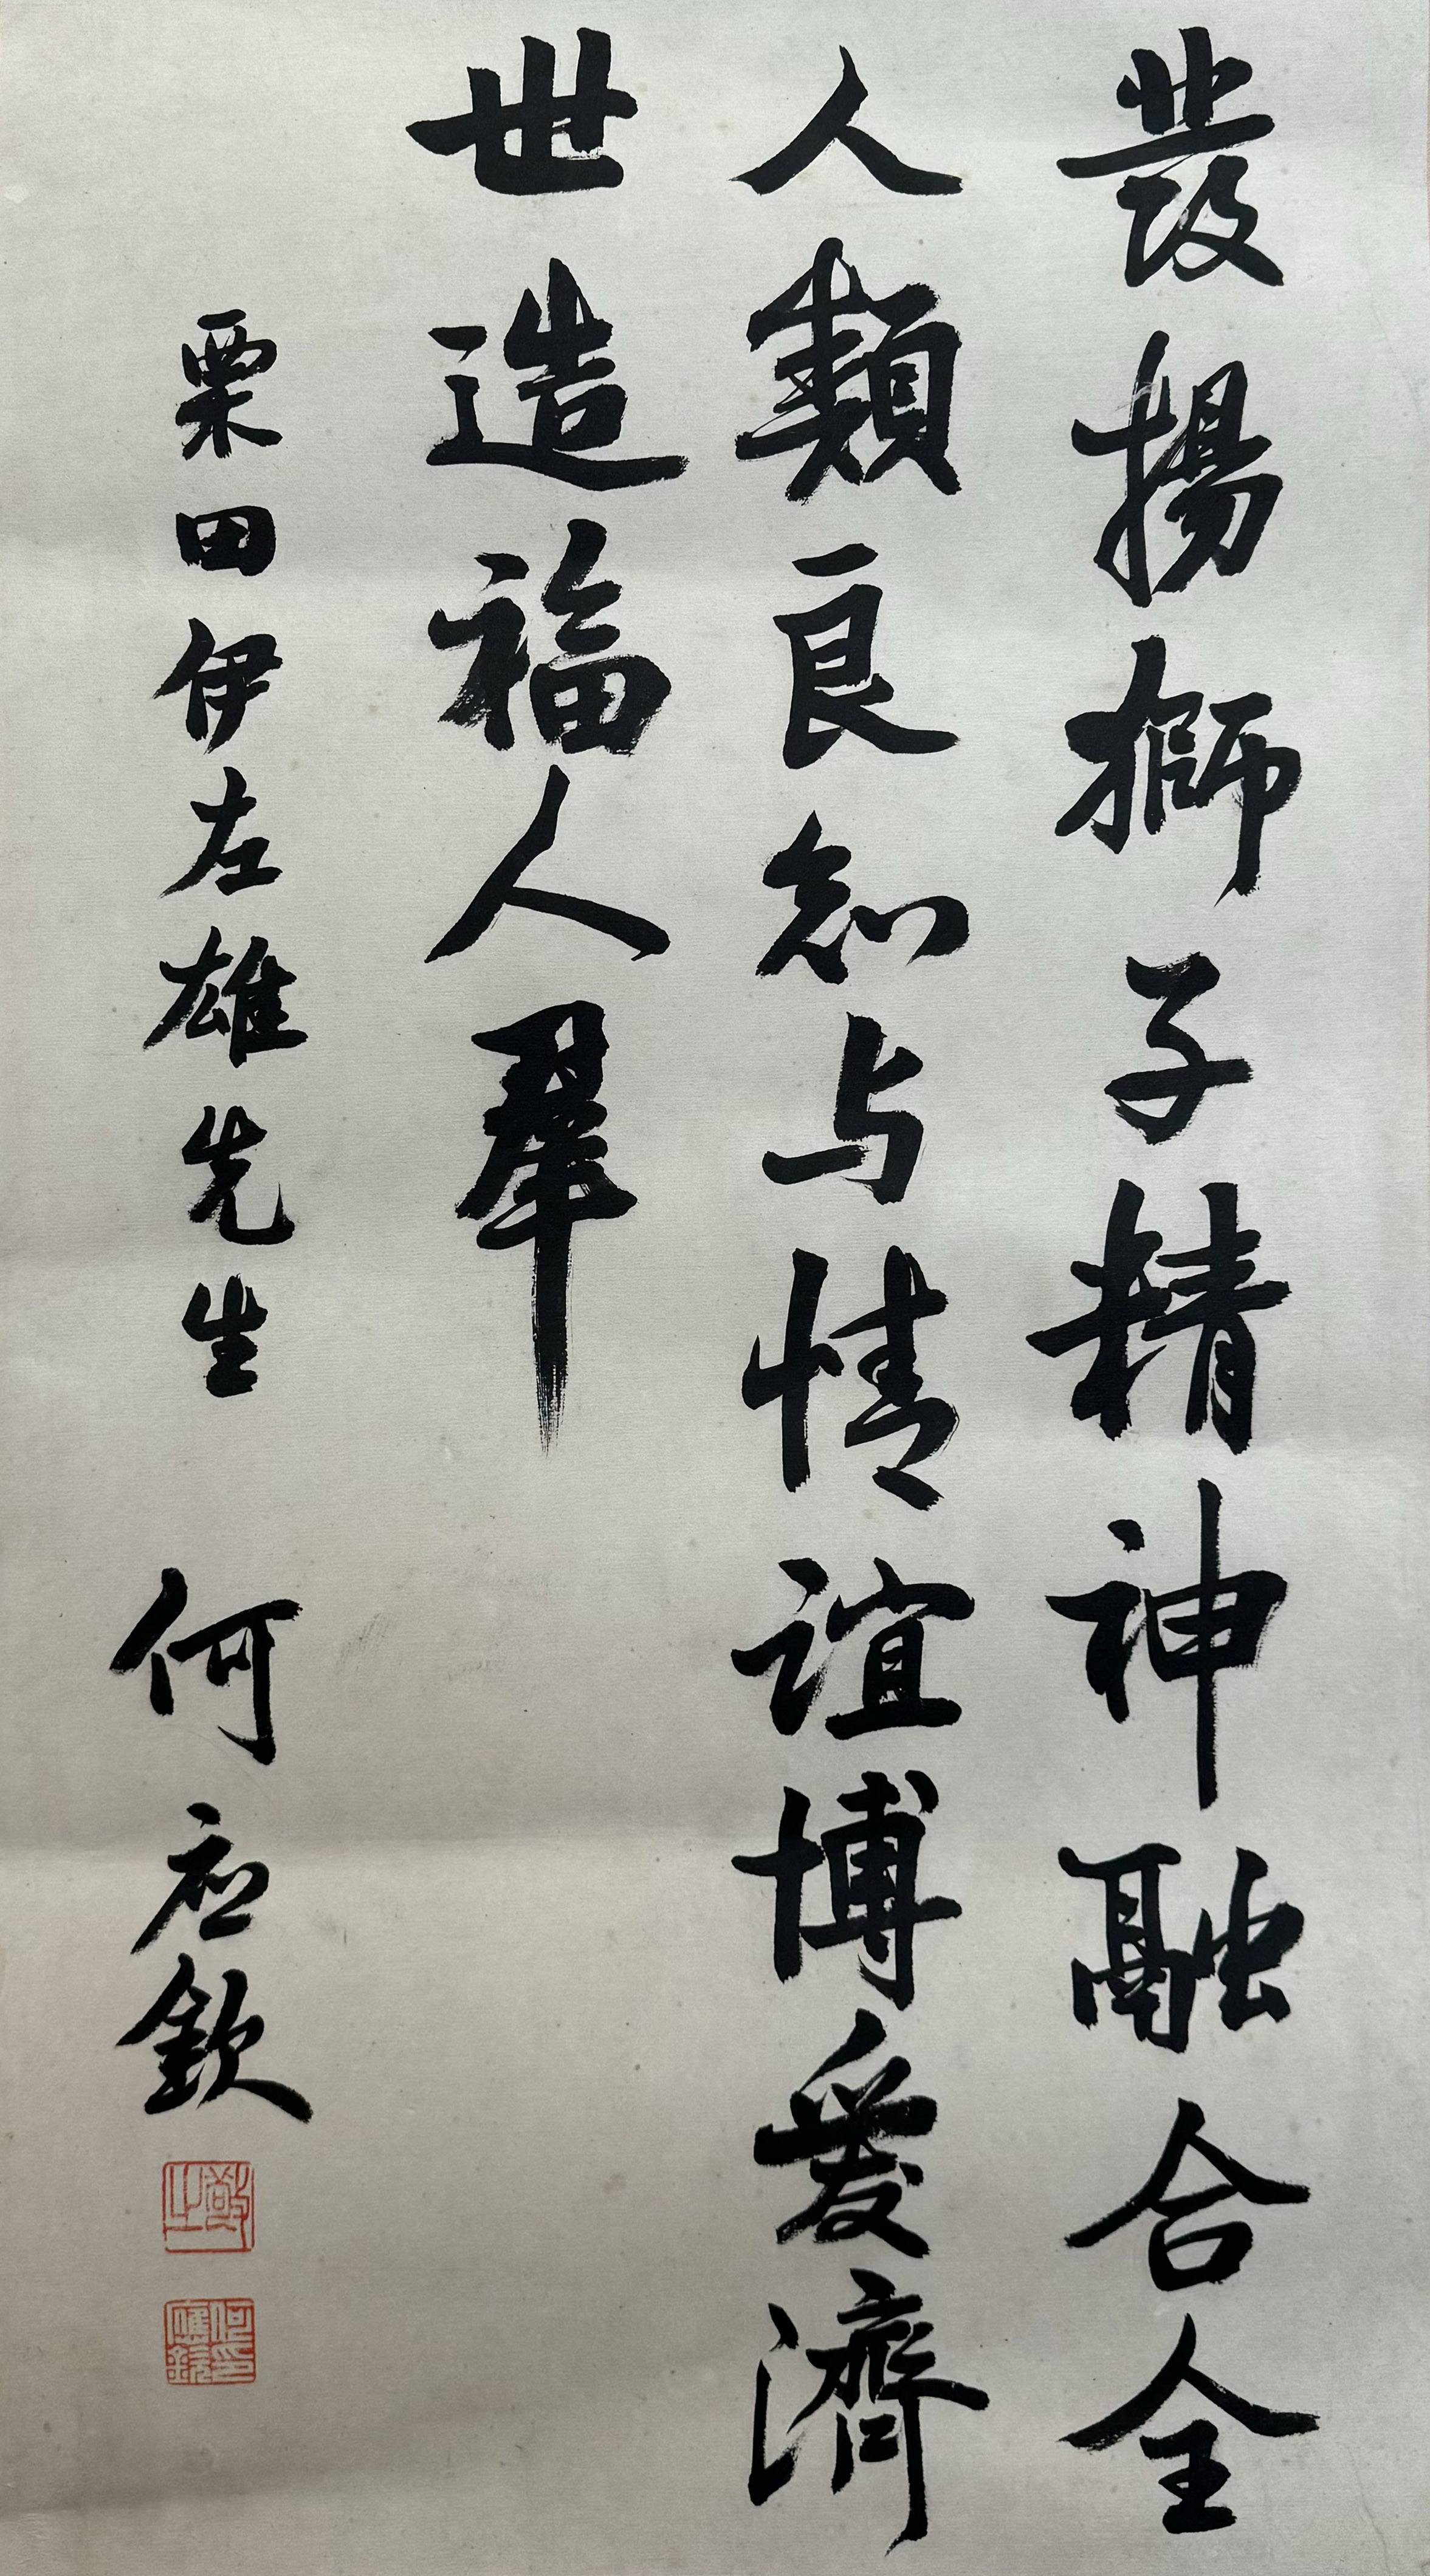 發揚獅子精神融合全
人類良知与情誼博愛濟
世造福人羣
栗田伊左雄先生 何应欽
敬之
何應欽印